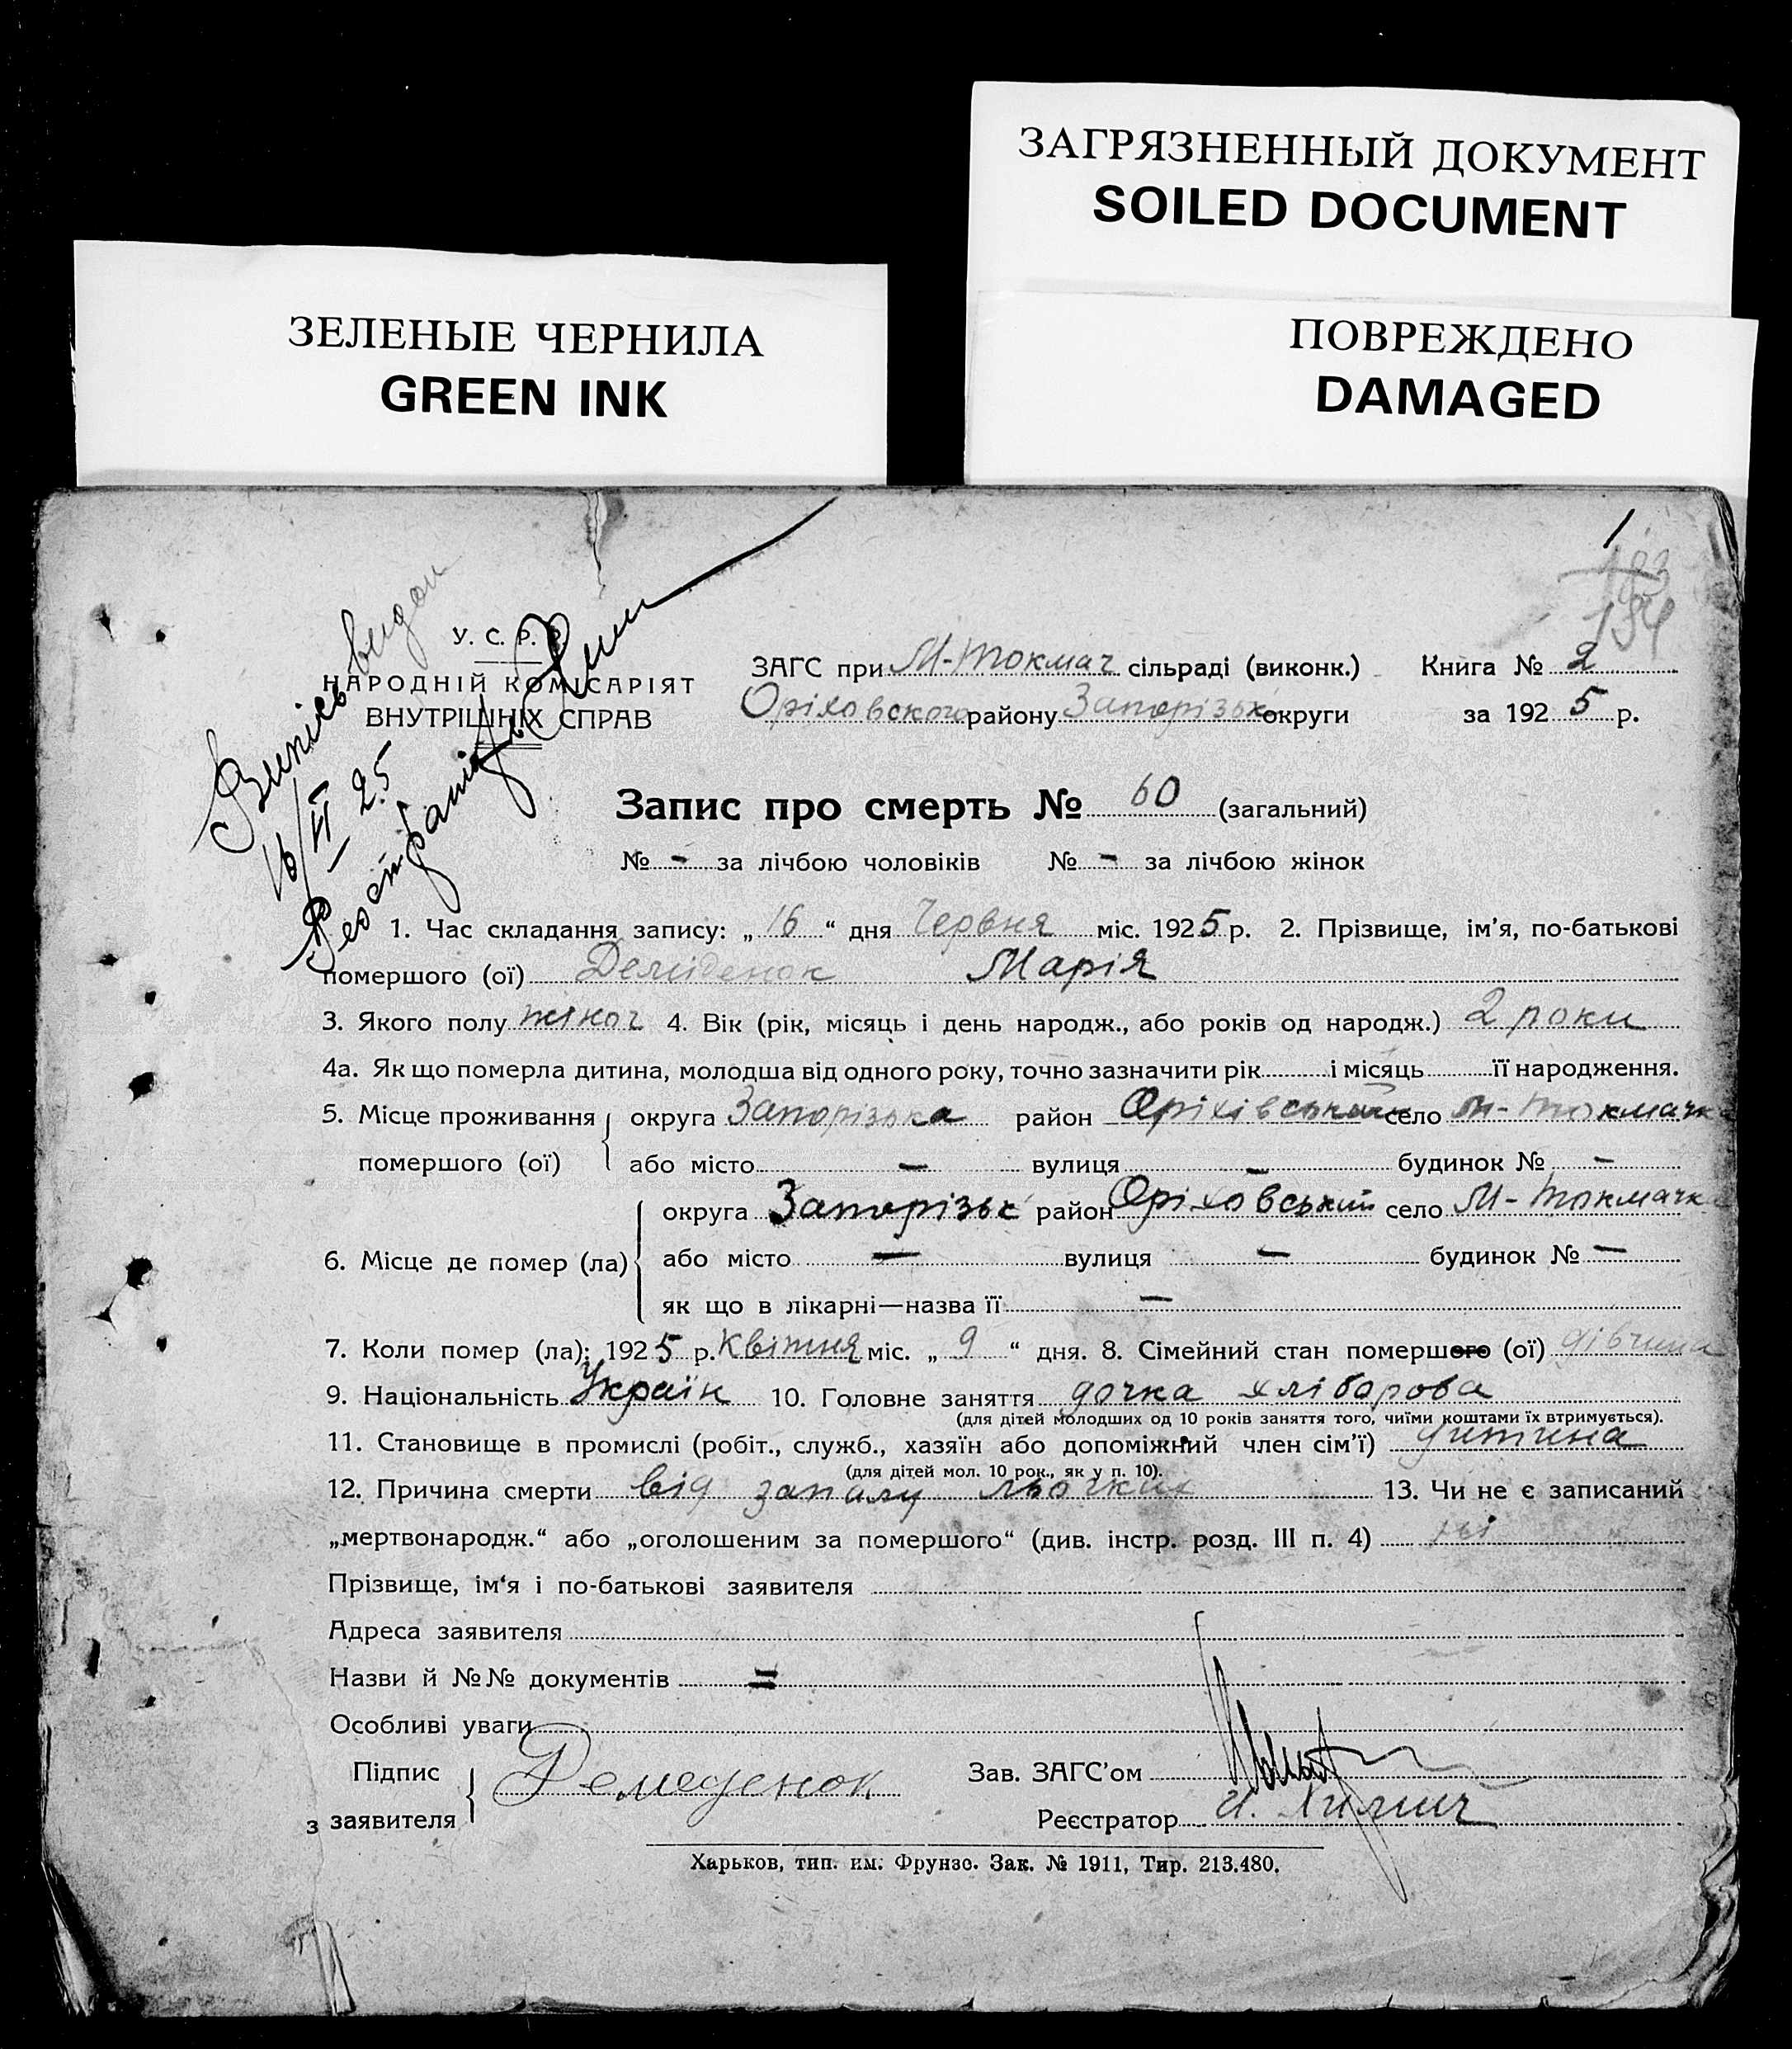 ЗАГРЯЗНЕННЫЙ ДОКУМЕНТ
SOILED DOCUMENT
ЗЕЛЕНЫЕ ЧЕРНИЛА
GREEN INK
ПОВРЕЖДЕНО
DAMAGED
1
184
Виписъ видан
16/VI 25
У. С. Р. Р.
НАРОДНІЙ КОМІСАРІЯТ
ВНУТРІШНІХ СПРАВ
ЗАГС при М-Токмач сільраді (виконк.) Книга № 2
Оріховского району Запорізьк округи за 1925 р.
Запис про смерть № 60 (загальний)
№ - за лічбою чоловіків № - за лічбою жінок
1. Час складання запису: „16“ дня Червня міс. 1925 р. 2. Прізвище, ім’я, по-батькові
помершого (ої) Демиденок Марія
3. Якого полу жіноч 4. Вік (рік, місяць і день народж., або років од народж.) 2 роки
4а. Як що померла дитина, молодша від одного року, точно зазначити рік і місяць її народження.
5. Місце проживання округа Запорізька район Оріхівський село М-Токмачка
помершого (ої) або місто — вулиця — будинок № —
округа Запорізьк район Оріховський село М-Токмачка
6. Місце де помер (ла) або місто — вулиця — будинок № —
як що в лікарні—назва її —
7. Коли помер (ла): 1925 р. Квітня міс. „9“ дня. 8. Сімейний стан помершого (ої) дівчина
9. Національність Україн 10. Головне заняття дочка хлібороба
(для дітей молодших од 10 років заняття того, чиїми коштами їх втримується).
11. Становище в промислі (робіт., служб., хазяїн або допоміжний член сім’ї) дитина
(для дітей мол. 10 рок., як у п. 10).
12. Причина смерти від запалу льогких 13. Чи не є записаний
„мертвонародж.“ або „оголошеним за помершого“ (див. інстр. розд. III п. 4) ні
Прізвище, ім‘я і по-батькові заявителя
Адреса заявителя
Назви й №№ документів =
Особливі уваги
Підпис Демеденок Зав. ЗАГС’ом
з заявителя Реєстратор
Харьков, тип. им. Фрунзе. Зак. № 1911, Тир. 213.480.